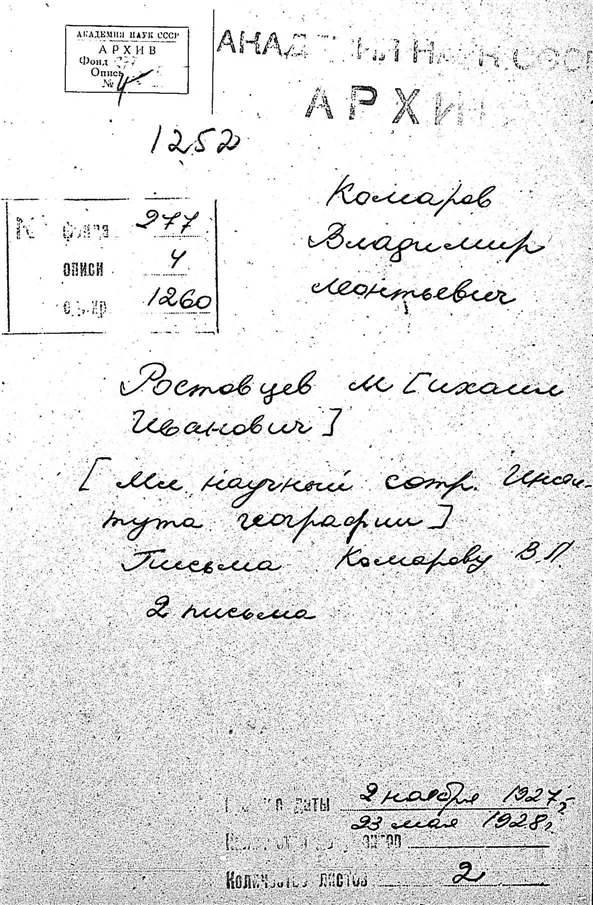 АКАДЕМИЯ НАУК СССР
АРХИВ
Фонд
Опись
№ 4
АКАДЕМИЯ НАУК СССР
АРХИВ
1252
№ фонда 277
описи 4
ед. хр. 1260
Комаров
Владимир
Леонтьевич
Ростовцев М [ихаил
Иванович]
[Мл научный сотр. Инсти-
тута географии]
Письма Комарову В.Л.
2 письма
даты 2 ноября 1927г.
23 мая 1928г.
Количество листов 2